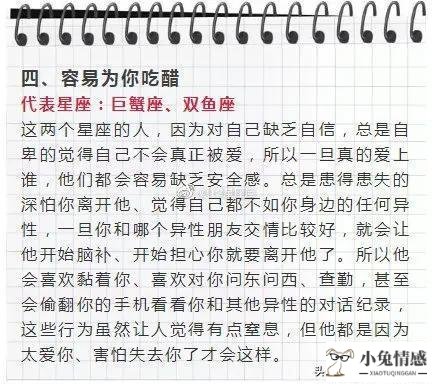 四、容易为你吃醋
代表星座：巨蟹座、双鱼座
这两个星座的人，因为对自己缺乏自信，总是自
卑的觉得自己不会真正被爱，所以一旦真的爱上
谁，他们都会容易缺乏安全感。总是患得患失的
深怕你离开他、觉得自己都不如你身边的任何异
性，一旦你和哪个异性朋友交情比较好，就会让
他开始脑补、开始担心你就要离开他了。所以他
会喜欢黏着你、喜欢对你问东问西、查勤，甚至
会偷翻你的手机看看你和其他异性的对话纪录，
这些行为虽然让人觉得有点窒息，但他都是因为
太爱你、害怕失去你了才会这样。
头
小兔情感
XIAOTUQINGGAN